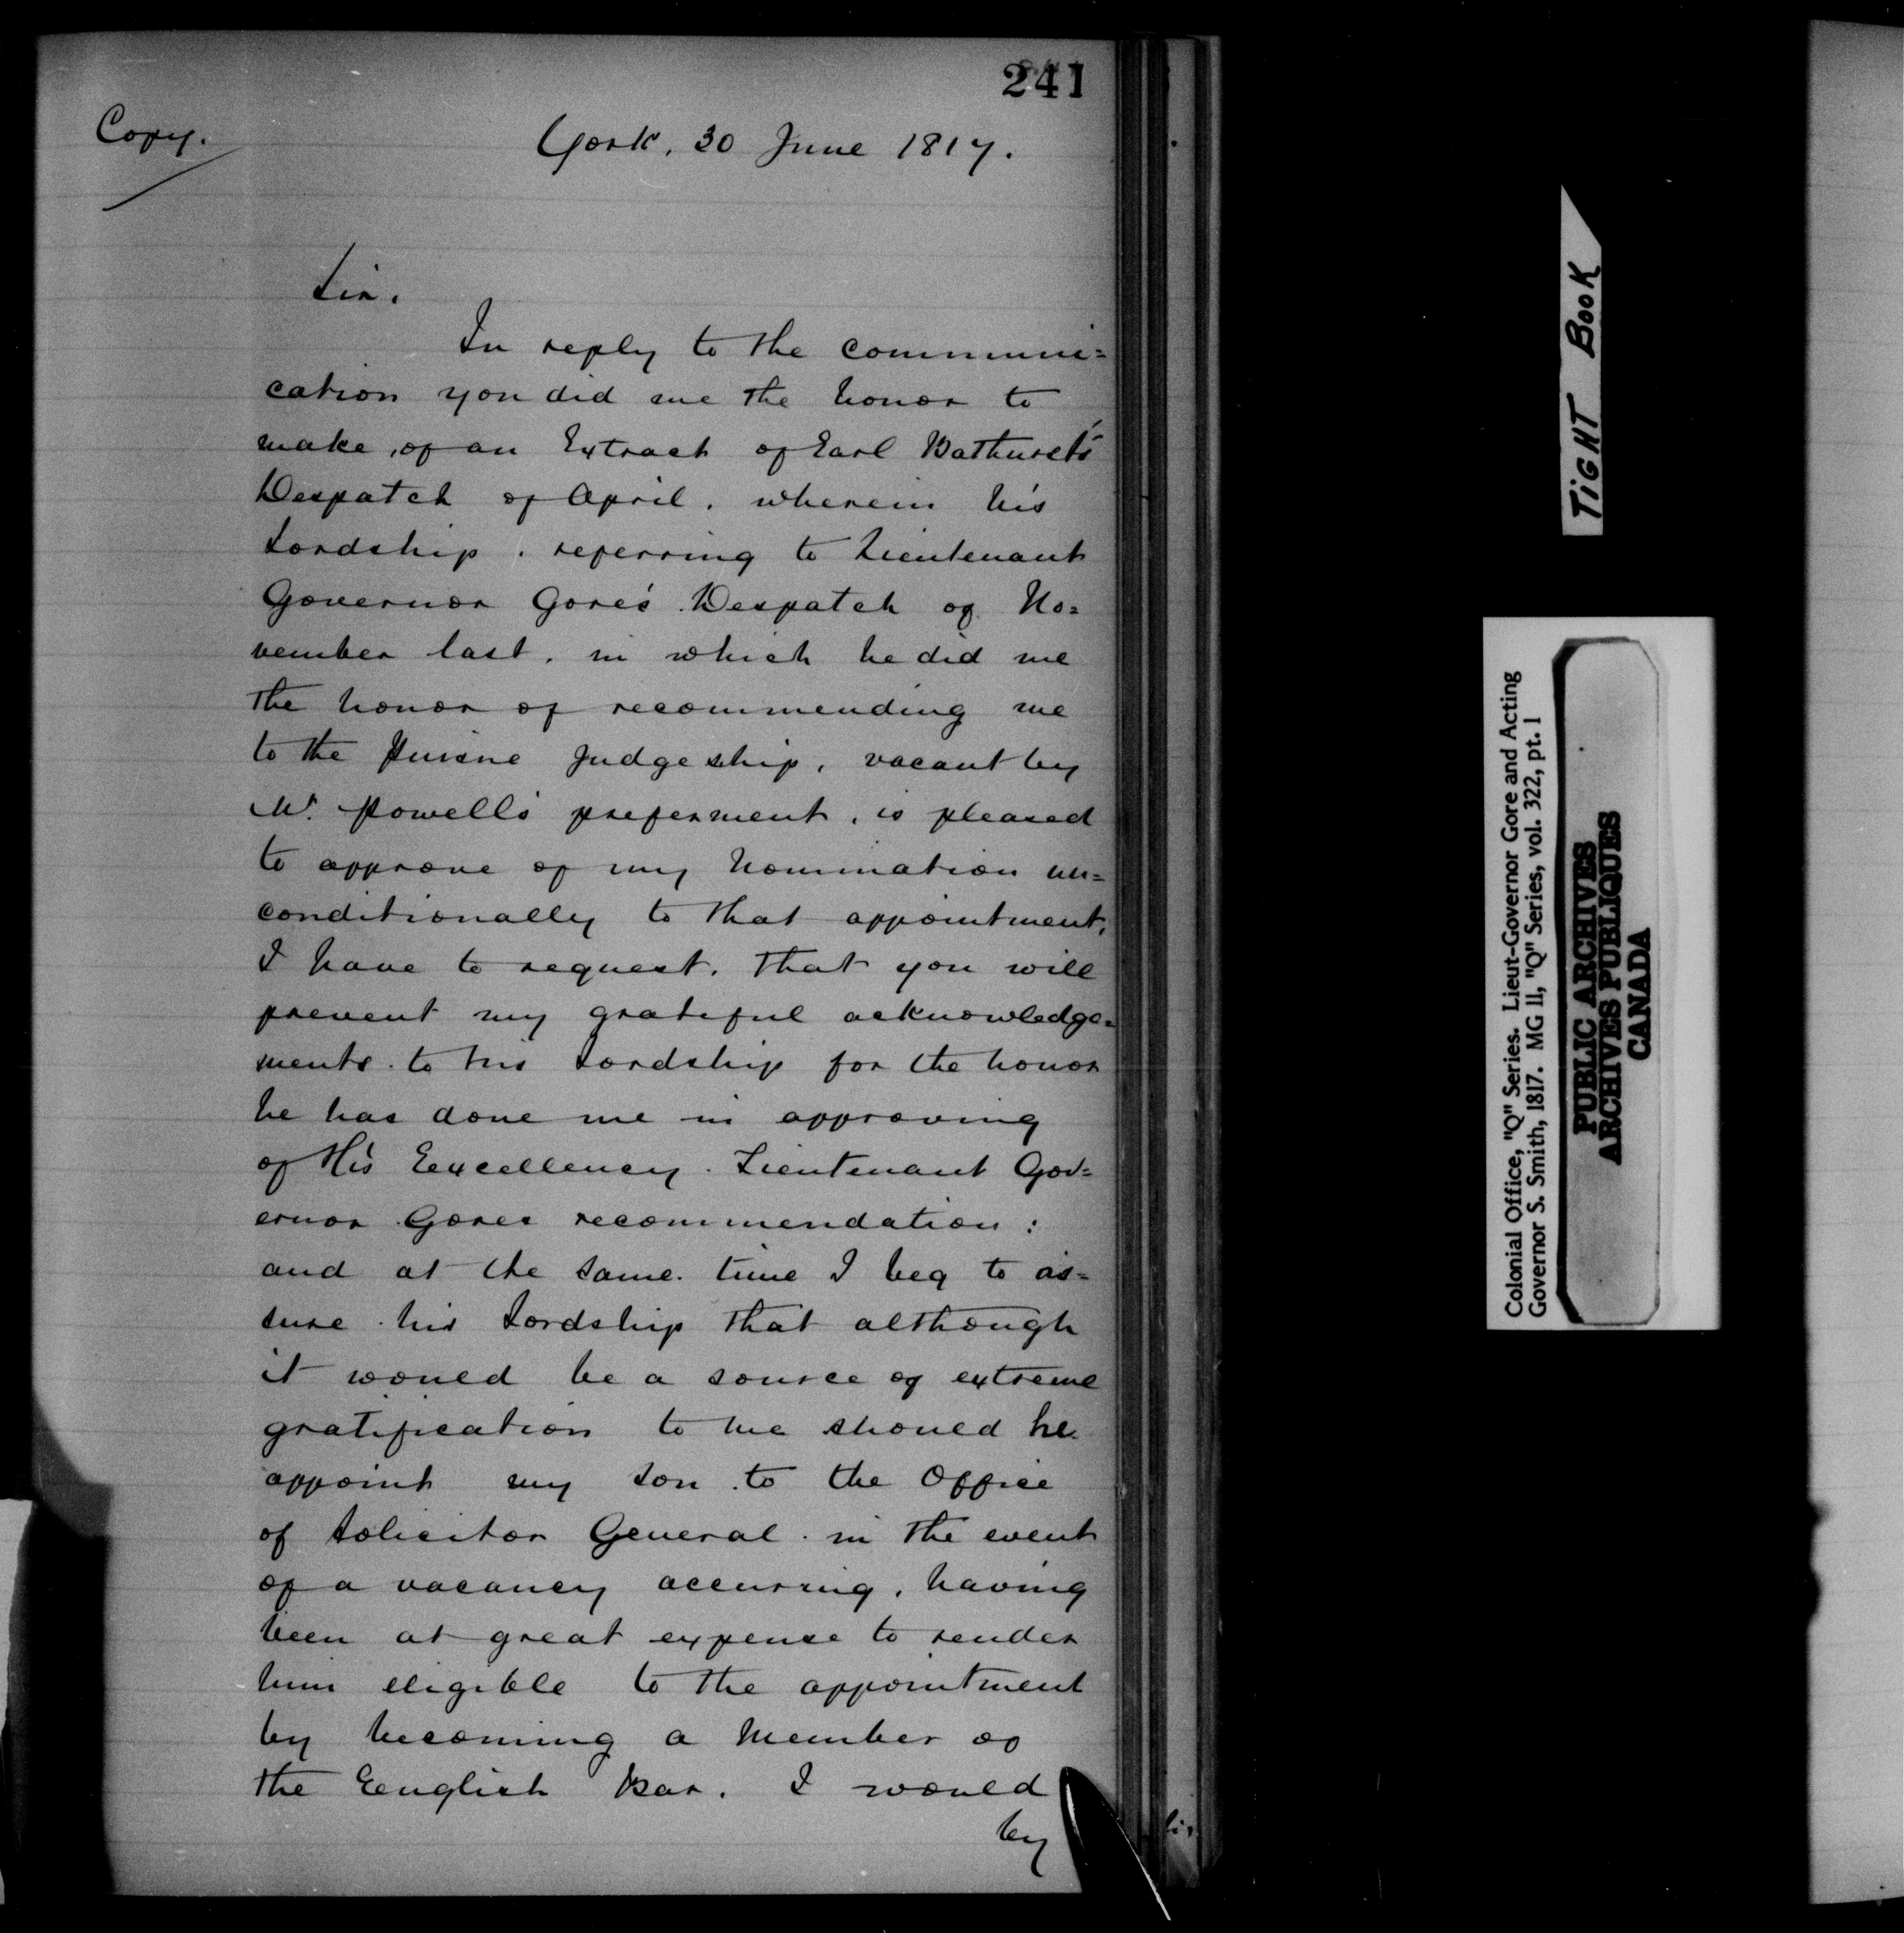 241
Copy.
York, 30 June 1817.
Sir.
In reply to the communi=
cation you did me the honor to
make, of an Extract of Earl Bathurst's
Despatch of April, wherein his
Lordship, referring to Lieutenant
Governor Gore's Despatch of No=
vember last, in which he did me
the honor of recommending me
to the Puisne Judgeship, vacant by
Mr. Powell's preferment, is pleased
to approve of my nomination un=
conditionally to that appointment,
I have to request, that you will
present my grateful acknowledge=
ments to his Lordship for the honor
he has done me in approving
of His Excellency Lieutenant Gov=
ernor Gores recommendation:
and at the same time I beg to as=
sure his Lordship that although
it would be a source of extreme
gratification to me should he
appoint my son to the Office
of Solicitor General in the event
of a vacancy accurring, having
been at great expense to render
him eligible to the appointment
by becoming a Member of
the English Bar. I would
by
TIGHT BOOK
Colonial Office, "Q" Series. Lieut-Governor Gore and Acting
Governor S. Smith, 1817. MG 11, "Q" Series, vol. 322, pt. 1
PUBLIC ARCHIVES
ARCHIVES PUBLIQUES
CANADA